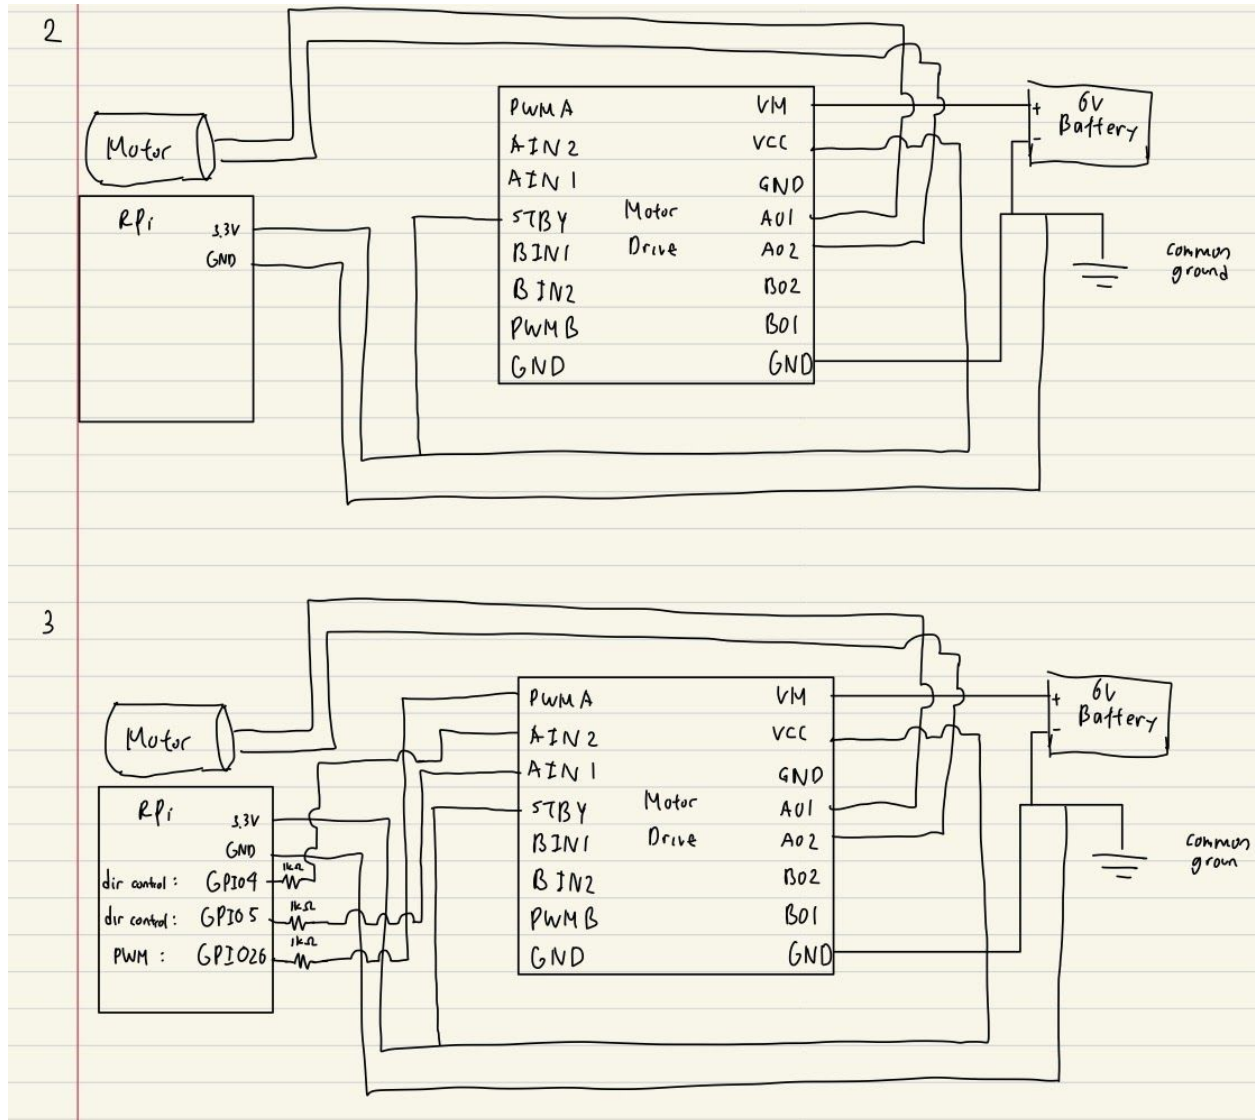 2
Motor
RPi
3.3V
GND
PWMA
AIN2
AIN1
STBY
BIN1
BIN2
PWMB
GND
Motor
Drive
VM
VCC
GND
A01
A02
B02
B01
GND
+ 6V
- Battery
common
ground
3
Motor
RPi
3.3V
GND
dir control: GPIO4 1kΩ
dir control: GPIO5 1kΩ
PWM: GPIO26 1kΩ
PWMA
AIN2
AIN1
STBY
BIN1
BIN2
PWMB
GND
Motor
Drive
VM
VCC
GND
A01
A02
B02
B01
GND
+ 6V
- Battery
common
groun